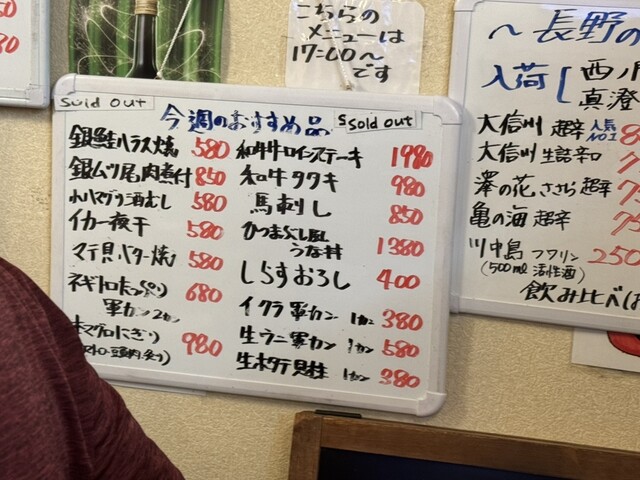 こちらの
メニューは
17:00〜
です
sold out
今週のおすすめ品
sold out
銀鮭ハラス焼 580
銀ムツ尾肉煮付 850
小ハマグリ酒むし 580
イカ一夜干 580
マテ貝バター焼 580
ネギトロ
軍カン2カン 680
本マグロにぎり 980
和牛サーロインステーキ 1980
和牛タタキ 980
馬刺し 850
ひつまぶし風
うな丼 1380
しらすおろし 400
イクラ軍カン 1カン 380
生ウニ軍カン 1カン 580
生ホタテ貝柱 1カン 380
〜長野の
入荷
西川
真澄
大信州 超辛 人気No1
大信州 生詰辛口
澤の花 ささら 超辛
亀の海 超辛
川中島 フワリン 250
(500ml 活性酒)
飲み比べ